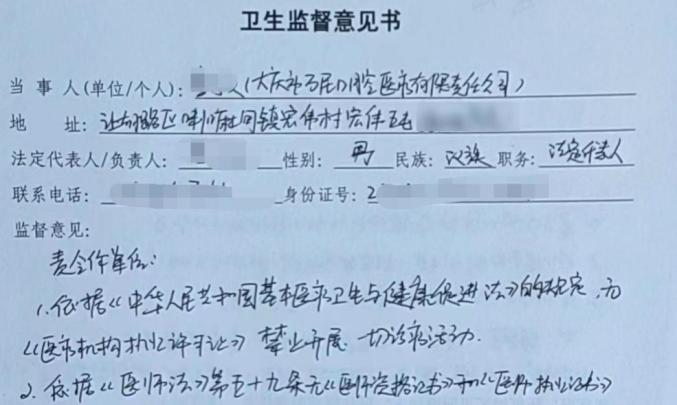 卫生监督意见书
当事人(单位/个人): (大庆 民口腔医疗有限责任公司)
地 址: 让胡路区喇嘛甸镇宏伟村宏伟屯
法定代表人/负责人: 性别: 男 民族: 汉族 职务: 法定代表人
联系电话: 身份证号: 2
监督意见:
责令你单位:
1.依据《中华人民共和国基本医疗卫生与健康促进法》的规定,无
《医疗机构执业许可证》禁止开展一切诊疗活动.
2.依据《医师法》第五十九条无《医师资格证书》和《医师执业证书》